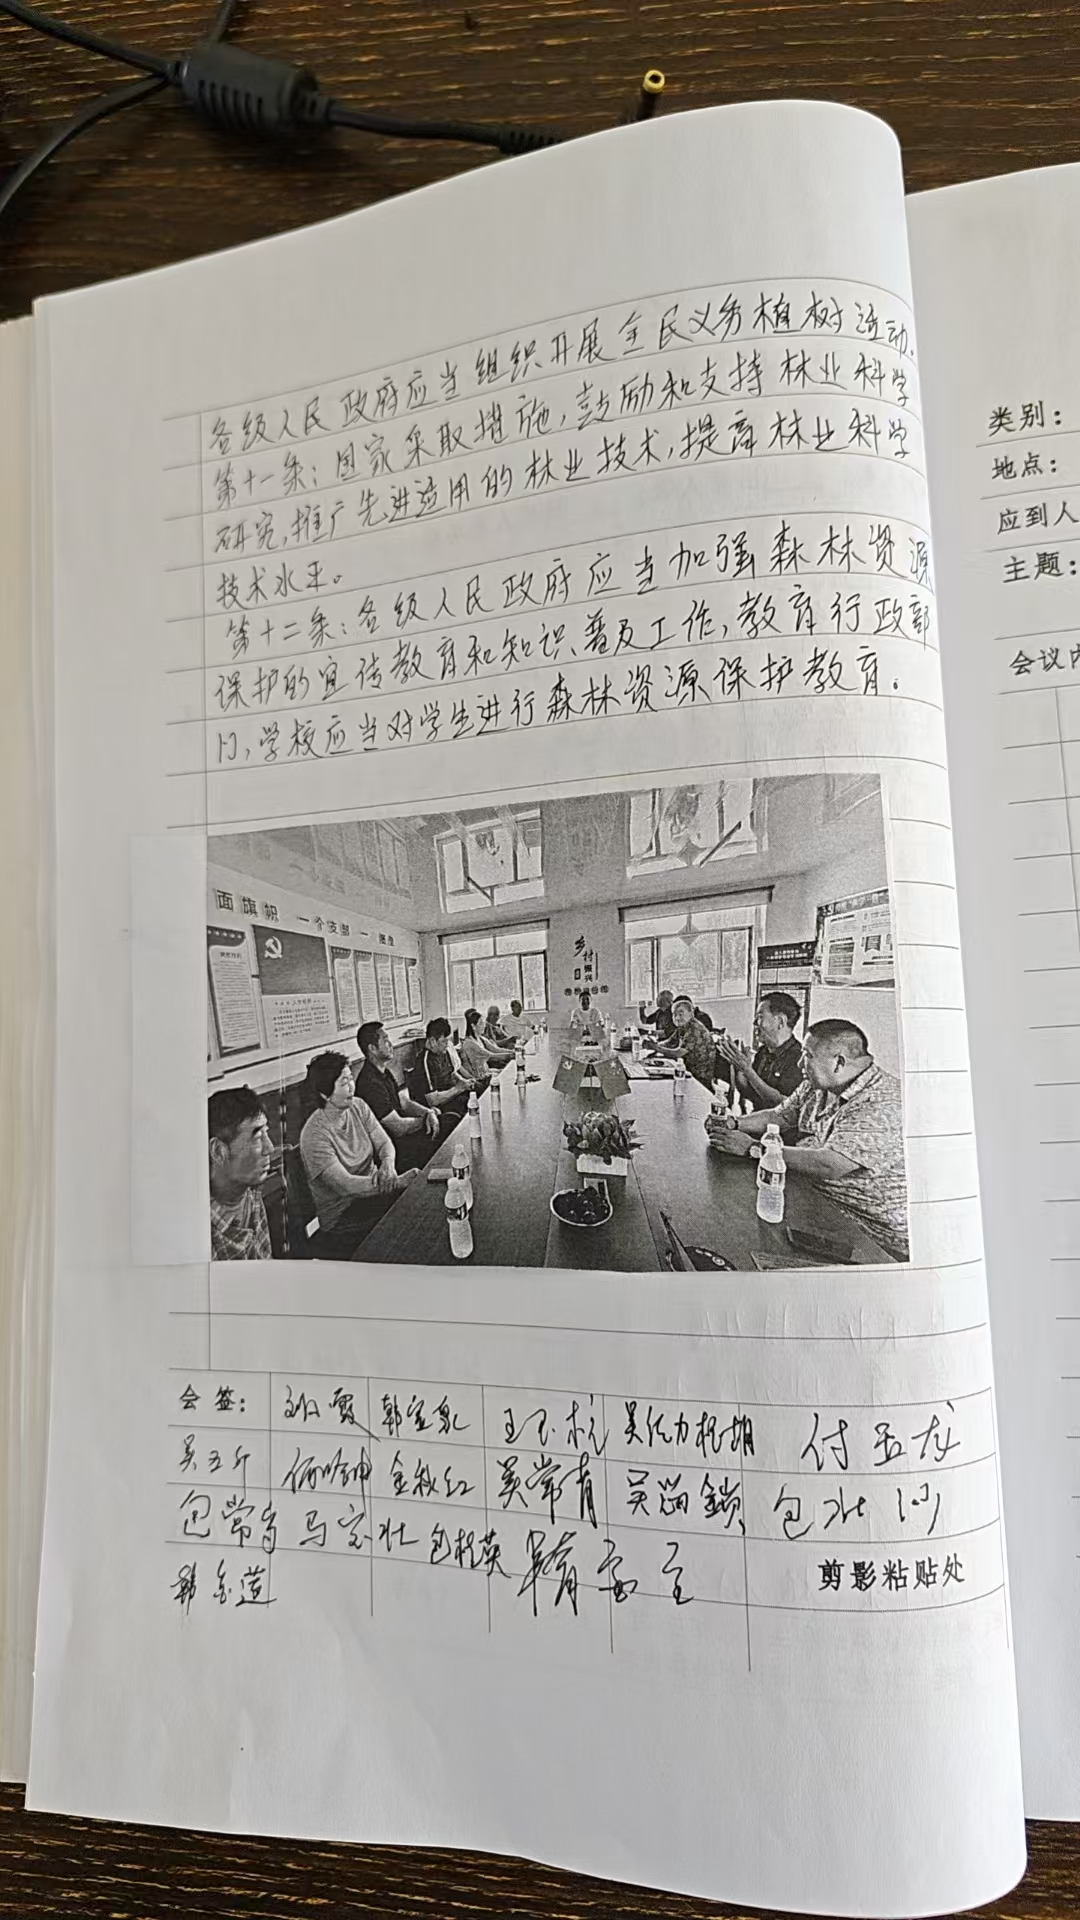 各级人民政府应当组织开展全民义务植树活动。
第十一条：国家采取措施，鼓励和支持林业科学
研究，推广先进适用的林业技术，提高林业科学
技术水平。
第十二条：各级人民政府应当加强森林资源
保护的宣传教育和知识普及工作，教育行政部
门，学校应当对学生进行森林资源保护教育。
面旗帜 一个支部一
乡村振兴
会签：
韩宝泉
金秋红 吴常青
包常青 马宝壮 包桂英
剪影粘贴处
类别：
地点：
应到人
主题：
会议内